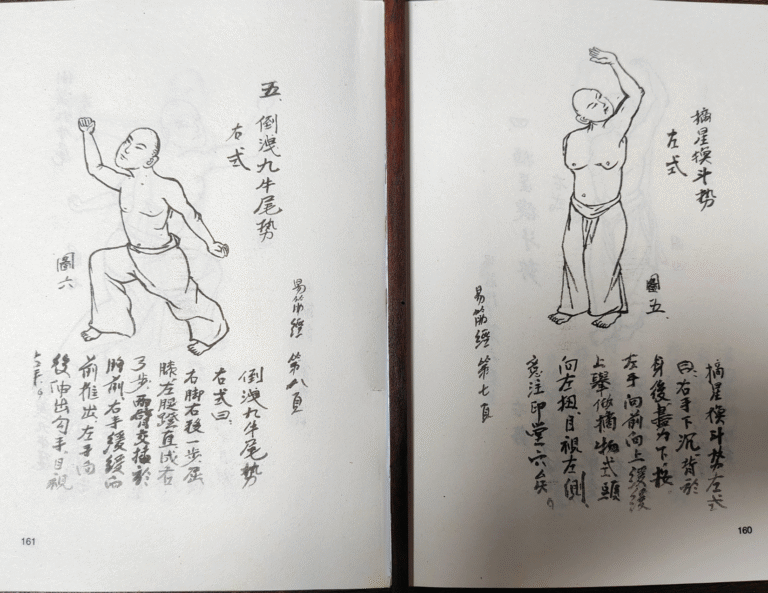 摘星換斗势
左式
圖五
摘星換斗势左式
曰、右手下沉、背於
身後盡力下、按
左手向前向上緩緩
上舉做摘物式頭
向左扭、目視左側、
意注印堂穴矣。
易筋經 第七頁
160
五、倒洩九牛尾势
右式
圖六
易筋經 第八頁
倒洩九牛尾势
右式曰、
右脚右移一步屈
膝左腿蹬直成右
弓步、兩臂交插於
胸前、右手緩緩向
前推出左手向
後伸出勾手目視
161